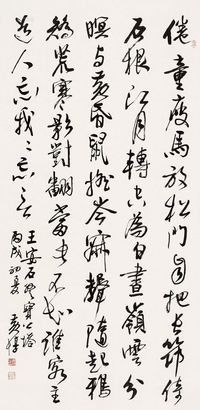 倦童疲馬放松門自把長筇倚
石根江月轉空為白晝嶺雲分
暝與黃昏鼠搖岑寂聲隨起鴉
矯荒寒影對翻當此不知誰客主
道人忘我々忘言
王安石登寶公塔
丙戌初夏